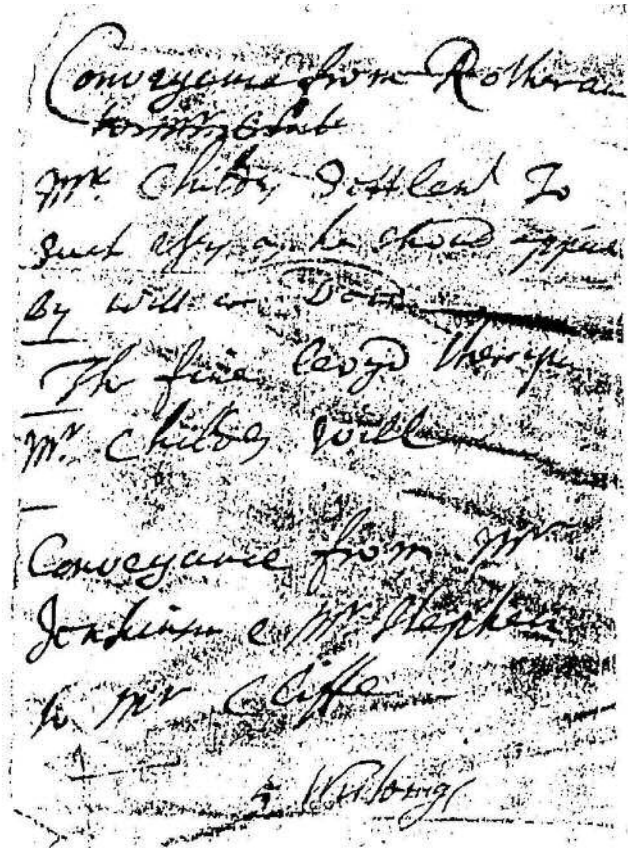 Conveyance from Rotheram
to Mr Child
Mr Childs Settlemt To
Such uses as he should appoint
By will or Deed
The fine levyd thereupon
Mr Childs Will
Conveyance from Mr
Jenkinson & Mr Stephen
to Mr Cliffe
4 Writings